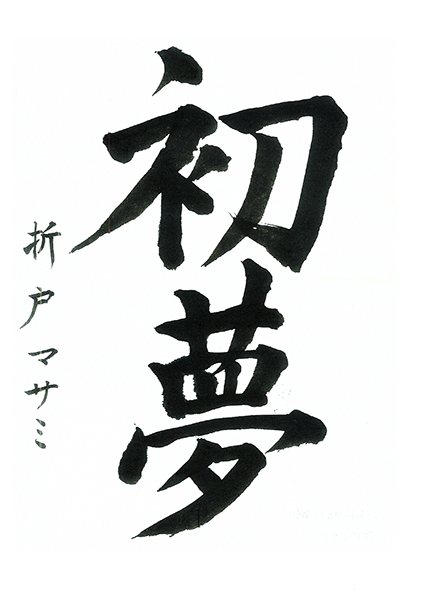 初夢
折戸マサミ